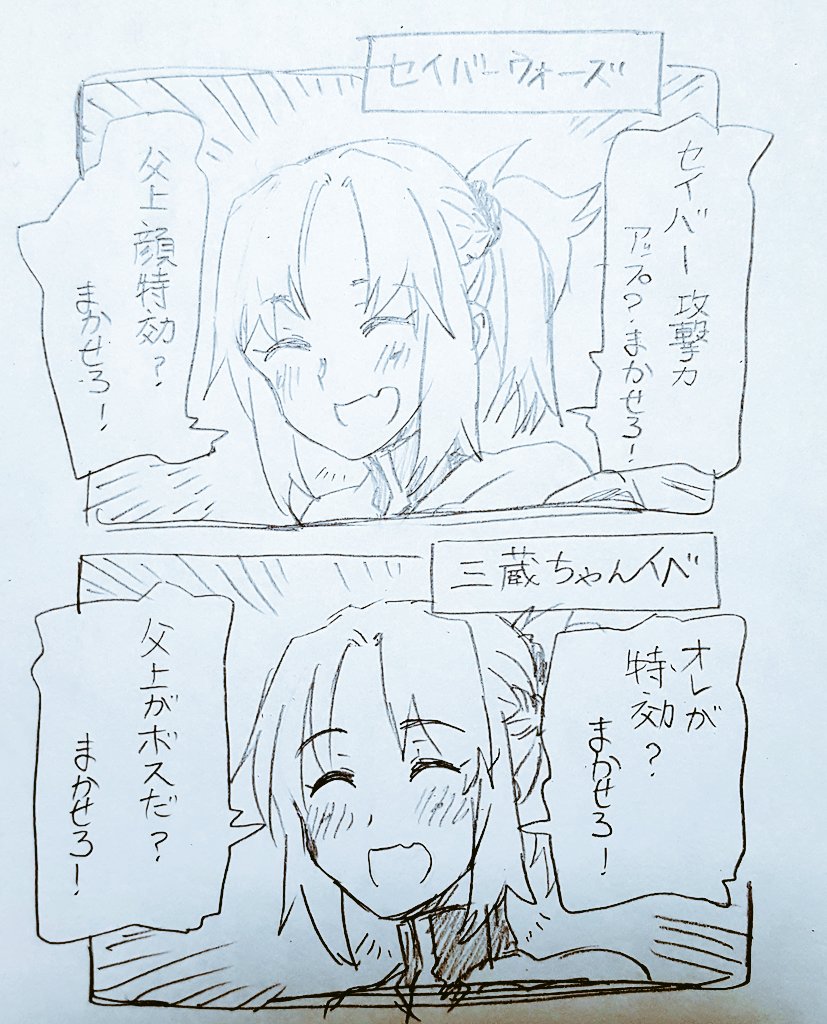 セイバーウォーズ
セイバー攻撃力
アップ?まかせろ!
父上顔特効?
まかせろ!
三蔵ちゃんイベ
オレが
特効?
まかせろ!
父上がボスだ?
まかせろ!